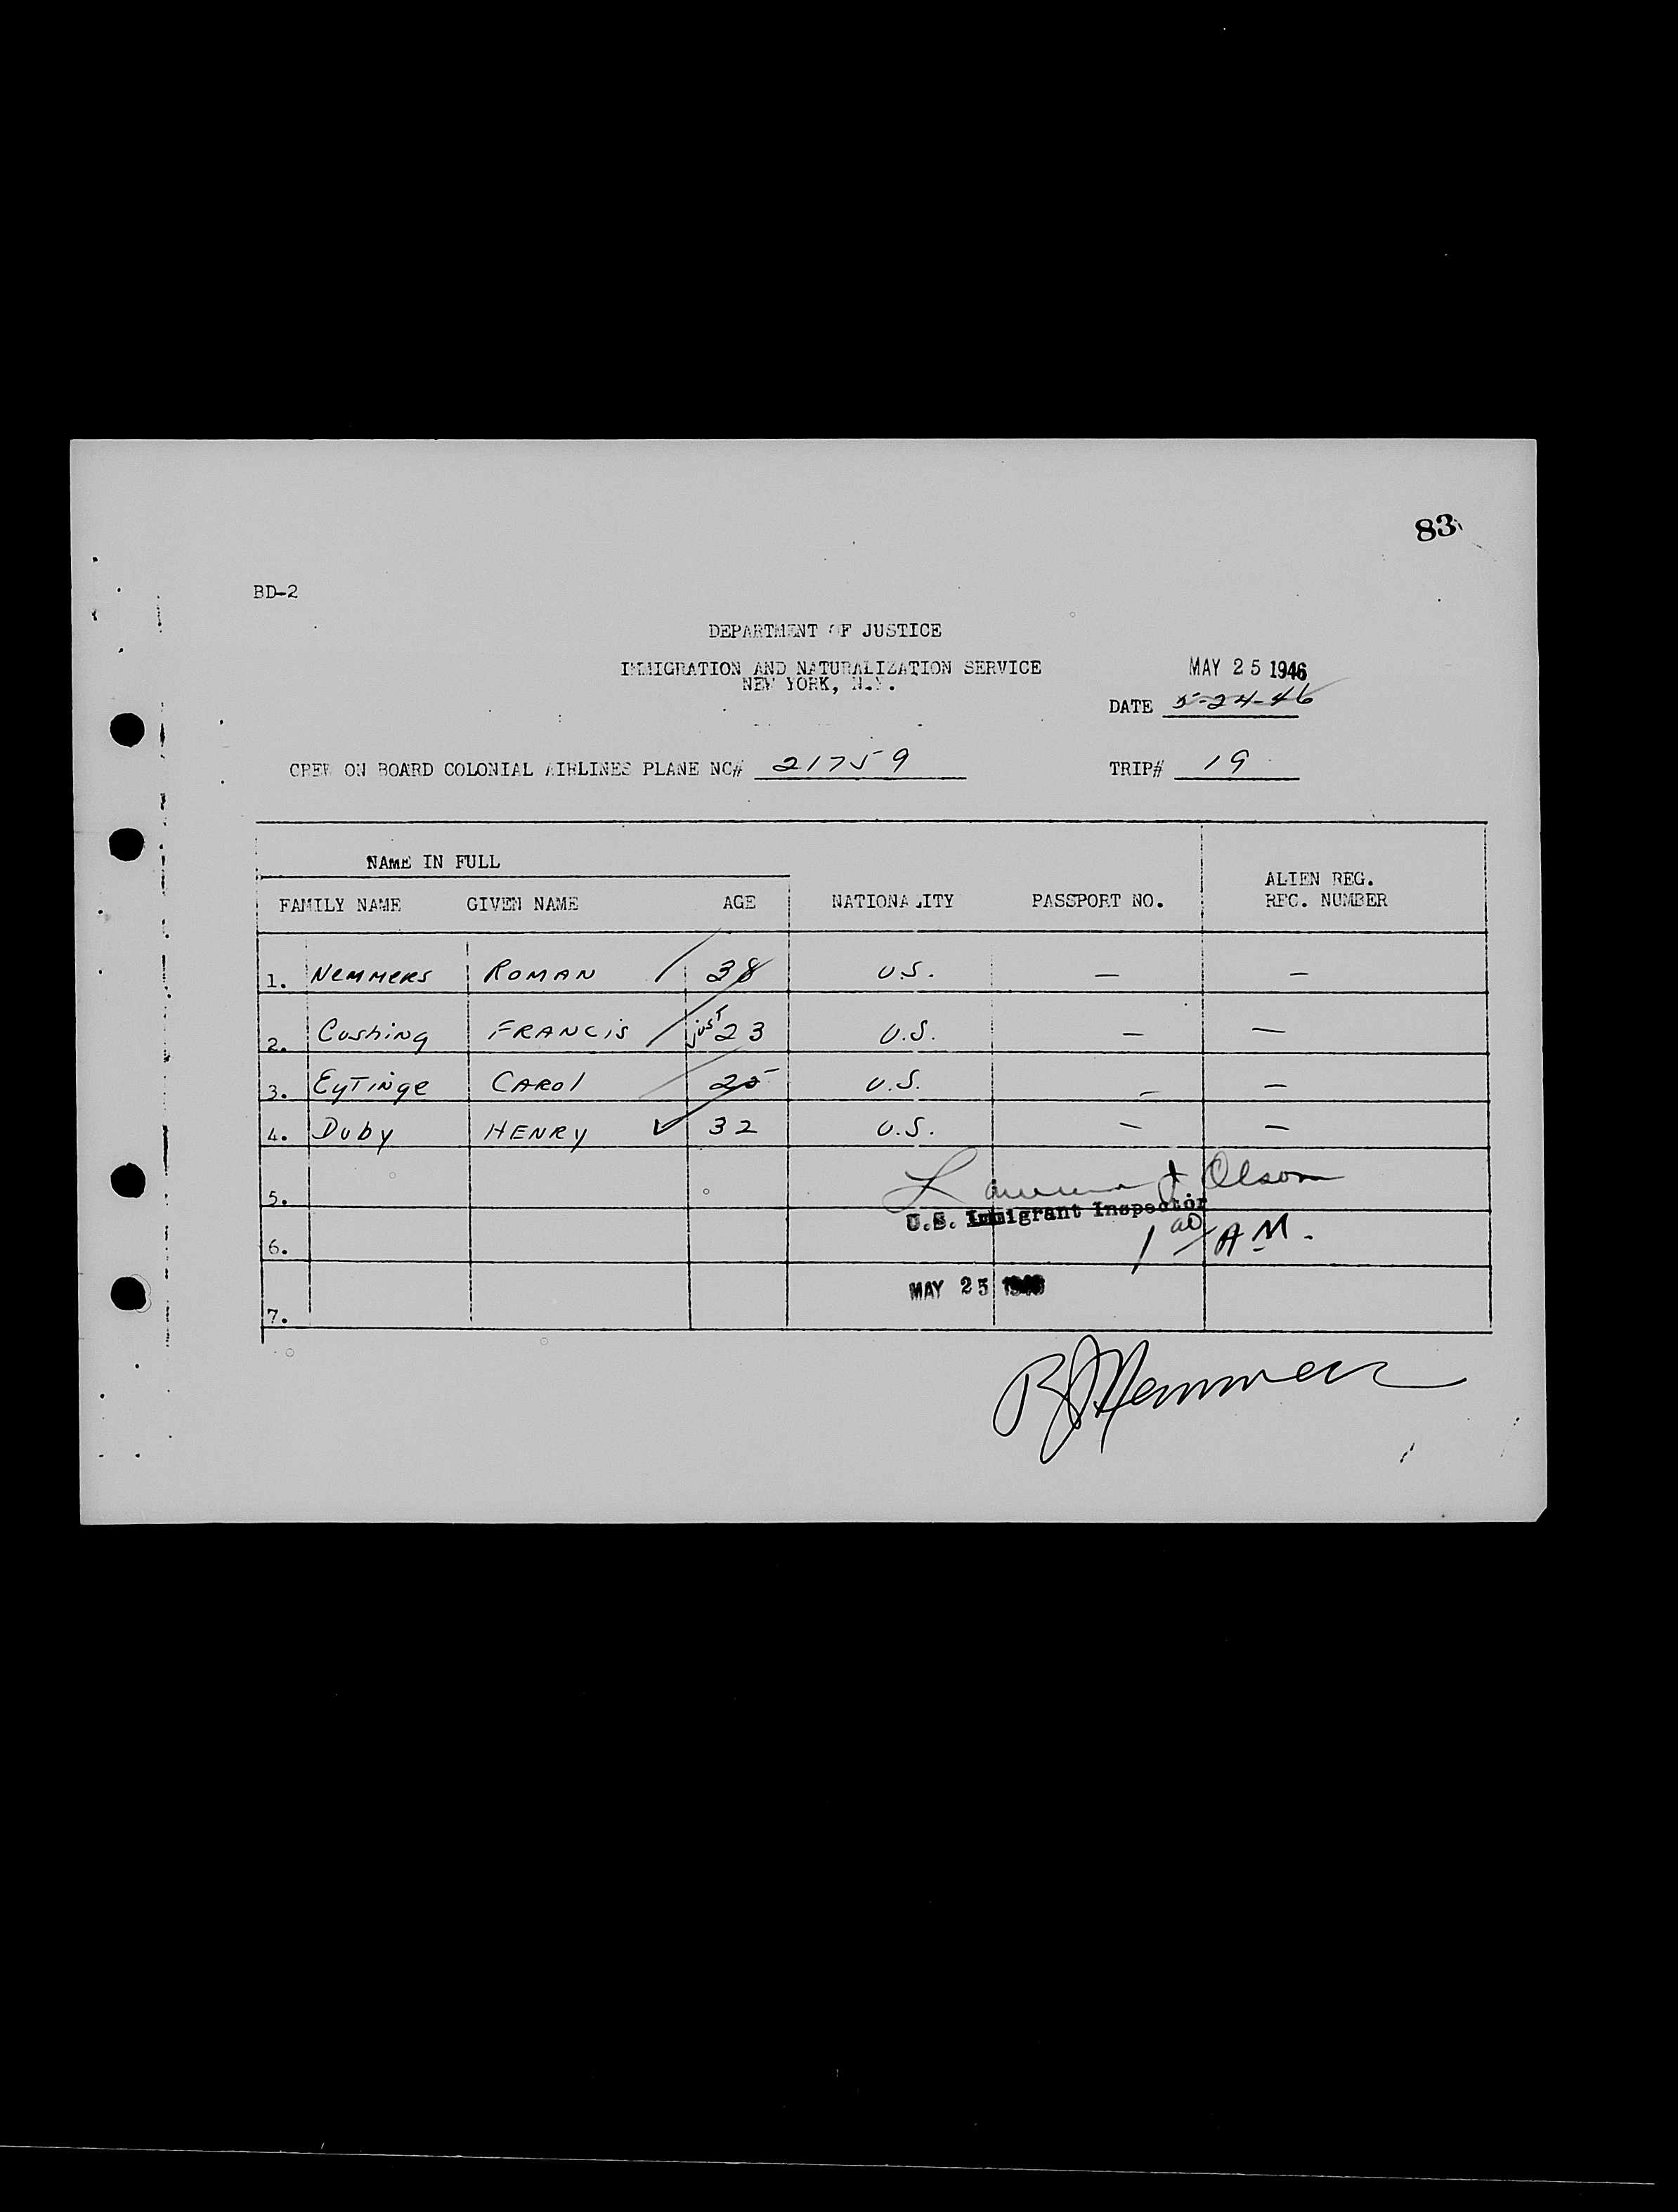 83
BD-2
DEPARTMENT OF JUSTICE
IMMIGRATION AND NATURALIZATION SERVICE
NEW YORK, N.Y.
MAY 25 1946
DATE 5-24-46
CREW ON BOARD COLONIAL AIRLINES PLANE NC# 21759 TRIP# 19
NAME IN FULL
FAMILY NAME GIVEN NAME AGE NATIONALITY PASSPORT NO. ALIEN REG. REC. NUMBER
1. Nemmers ROMAN 38 U.S. — —
2. Cushing FRANCIS just 23 U.S. — —
3. EyTinge CAROl 25 U.S. — —
4. Duby HENRY 32 U.S. — —
5. J Olson
U.S. Immigrant Inspector
6. 1 00 A.M.
MAY 25 1946
7.
R J Nemmers